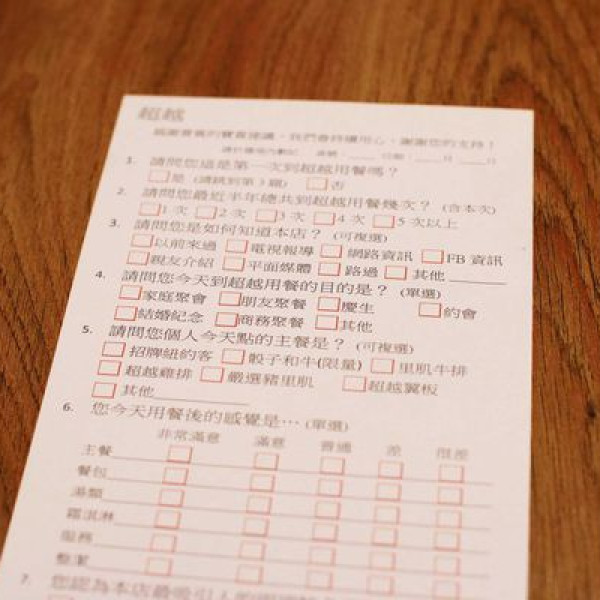 超越
感謝寶貴的寶貴建議，我們會持續用心，謝謝您的支持！
日期：____月____
1. 請問您這是第一次到超越用餐嗎？
□是 (請跳到第3題) □否
2. 請問您最近半年總共到超越用餐幾次？ (含本次)
□1次 □2次 □3次 □4次 □5次以上
3. 請問您是如何知道本店？ (可複選)
□以前來過 □電視報導 □網路資訊 □FB資訊
□親友介紹 □平面媒體 □路過 □其他______
4. 請問您今天到超越用餐的目的是？ (單選)
□家庭聚會 □朋友聚餐 □慶生 □約會
□結婚紀念 □商務聚餐 □其他
5. 請問您個人今天點的主餐是？ (可複選)
□招牌紐約客 □骰子和牛(限量) □里肌牛排
□超越雞排 □嚴選豬里肌 □超越翼板
□其他__________
6. 您今天用餐後的感覺是… (單選)
非常滿意 滿意 普通 差 很差
主餐
餐包
湯類
霜淇淋
服務
整潔
7. 您認為本店最吸引人的